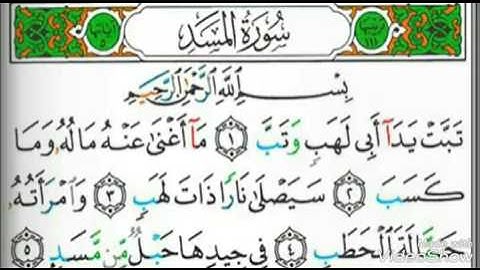 ترتيبها ١١١
سُورَةُ المَسَدِ
آياتها ٥
بِسْمِ اللَّهِ الرَّحْمَٰنِ الرَّحِيمِ
تَبَّتْ يَدَآ أَبِي لَهَبٍ وَتَبَّ ١ مَآ أَغْنَىٰ عَنْهُ مَالُهُ وَمَا
كَسَبَ ٢ سَيَصْلَىٰ نَارًا ذَاتَ لَهَبٍ ٣ وَامْرَأَتُهُ
حَمَّالَةَ الْحَطَبِ ٤ فِي جِيدِهَا حَبْلٌ مِّن مَّسَدٍ ٥
VideoShow